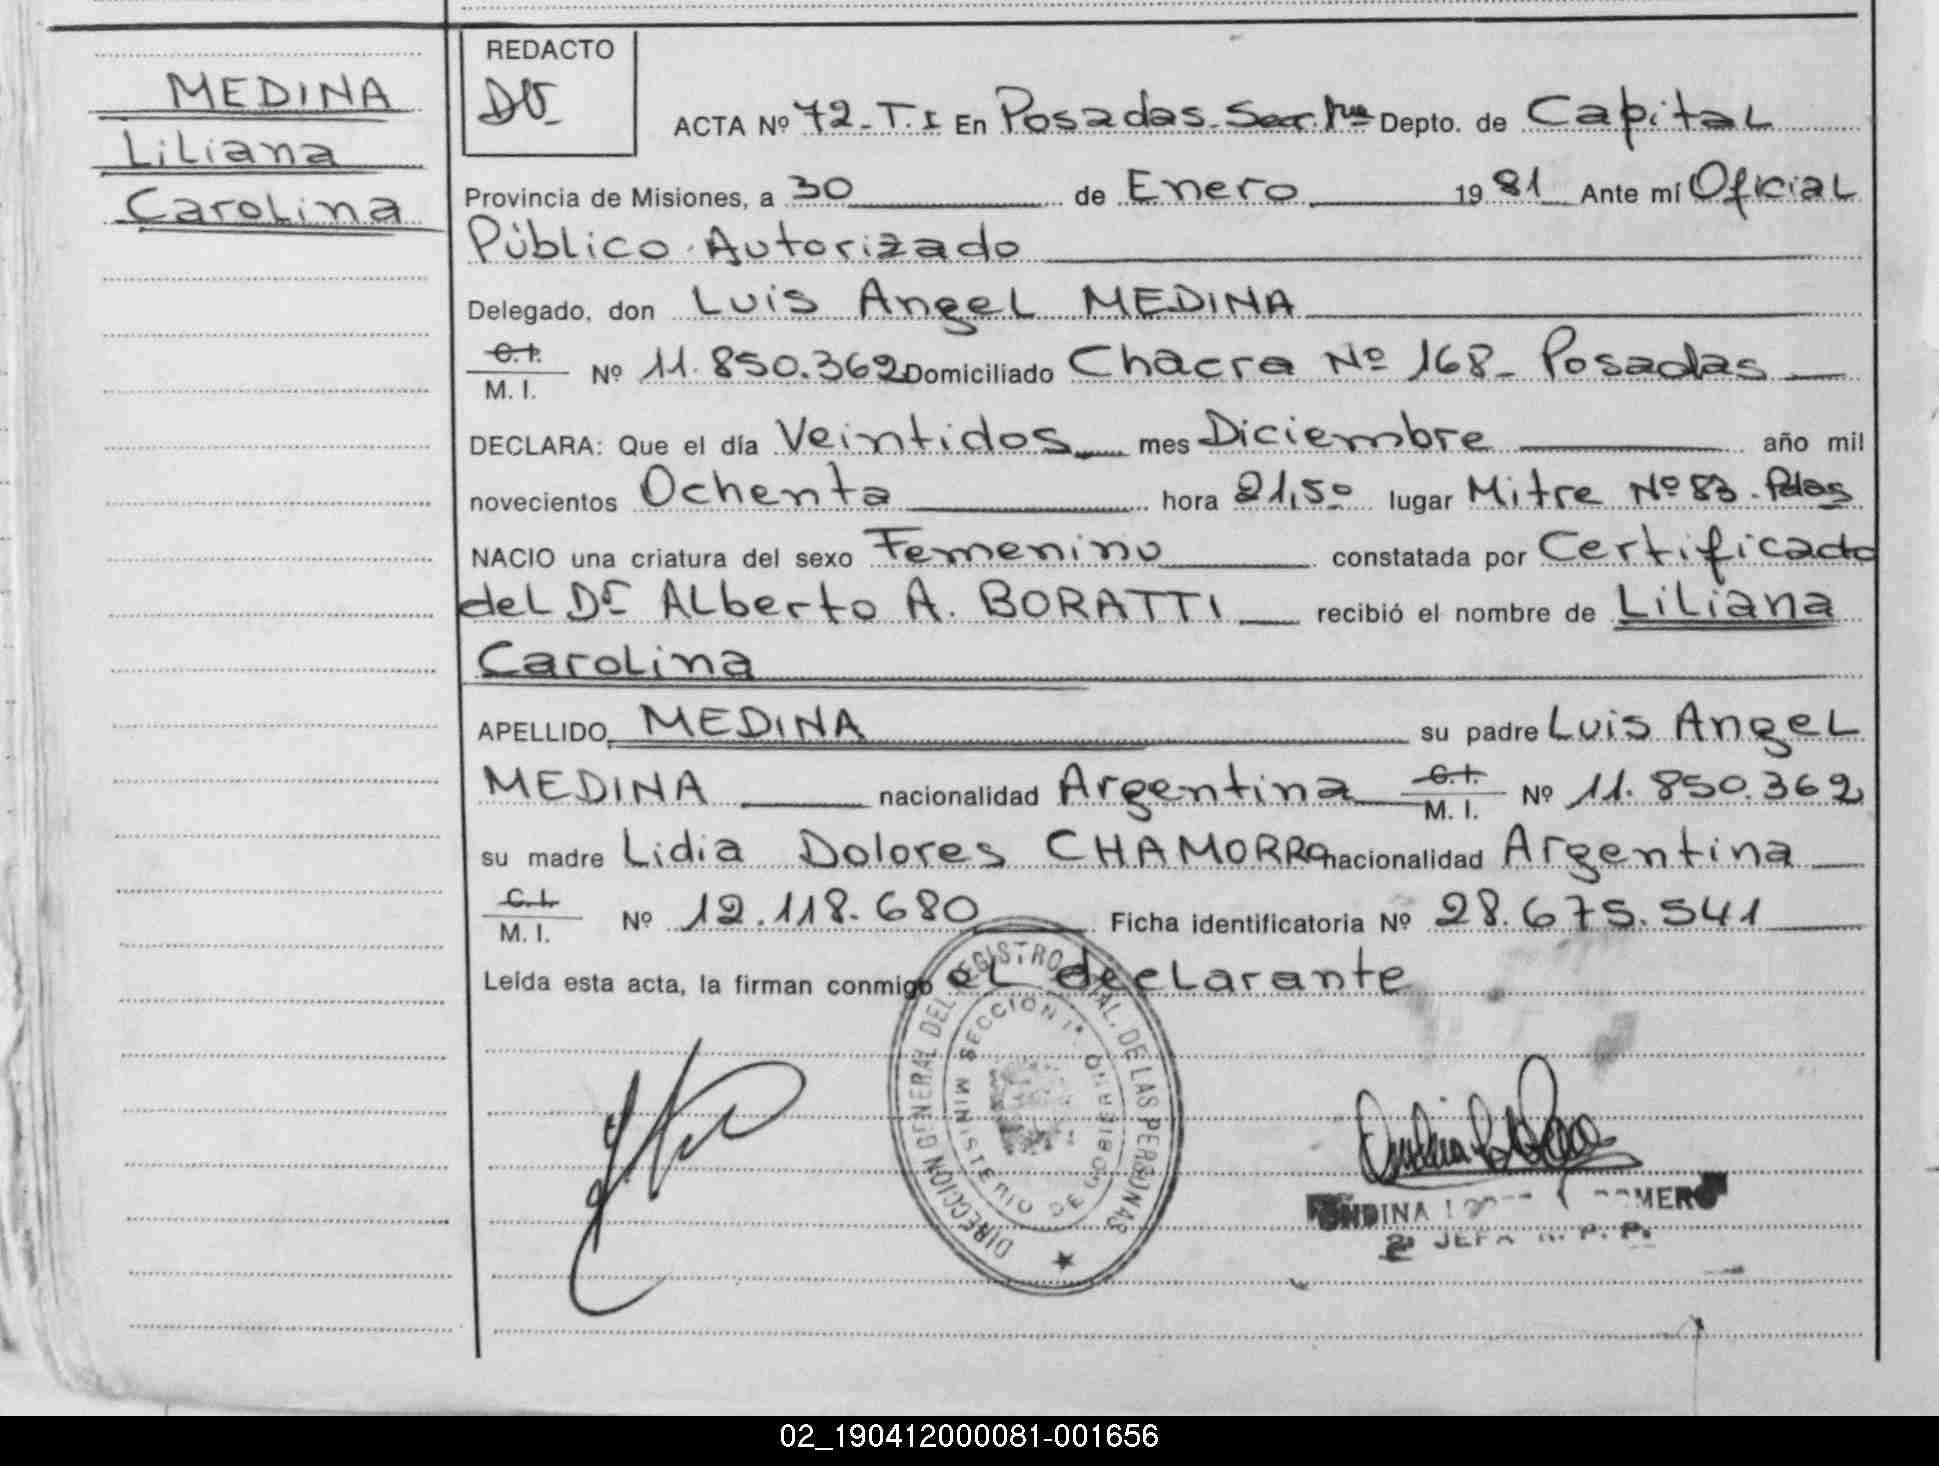 MEDINA
Liliana
Carolina
REDACTO
DV
ACTA Nº 72-T.I En Posadas-Secc. 1ra Depto. de Capital
Provincia de Misiones, a 30 de Enero 1981 Ante mí Oficial
Público Autorizado
Delegado, don Luis Angel MEDINA
C.I.
M. I. Nº 11.850.362 Domiciliado Chacra Nº 168- Posadas
DECLARA: Que el día Veintidos mes Diciembre año mil
novecientos Ochenta hora 21,50 lugar Mitre Nº 83. Pdas
NACIO una criatura del sexo Femenino constatada por Certificado
del Dr Alberto A. BORATTI recibió el nombre de Liliana
Carolina
APELLIDO MEDINA su padre Luis Angel
MEDINA nacionalidad Argentina C.I. M. I. Nº 11.850.362
su madre Lidia Dolores CHAMORRO nacionalidad Argentina
C.I.
M. I. Nº 12.118.680 Ficha identificatoria Nº 28.675.541
Leída esta acta, la firman conmigo el declarante
DIRECCION GENERAL DEL REGISTRO PCIAL. DE LAS PERSONAS
MINISTERIO DE GOBIERNO
SECCION 1ª
2ª JEFA R. P. P.
02_190412000081-001656